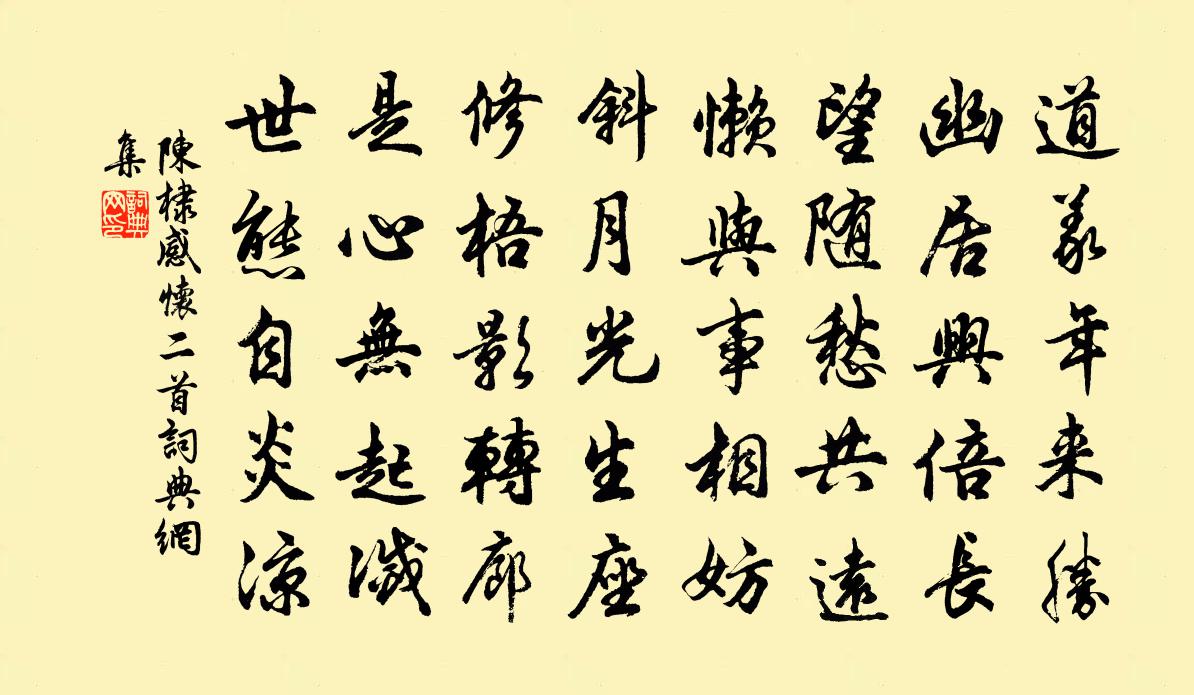 道義年来勝
幽居興倍長
望随愁共遠
懶與事相妨
斜月光生座
修梧影轉廊
是心無起滅
世態自炎涼
陳棣感懷二首詞典網
集
詞典
网印